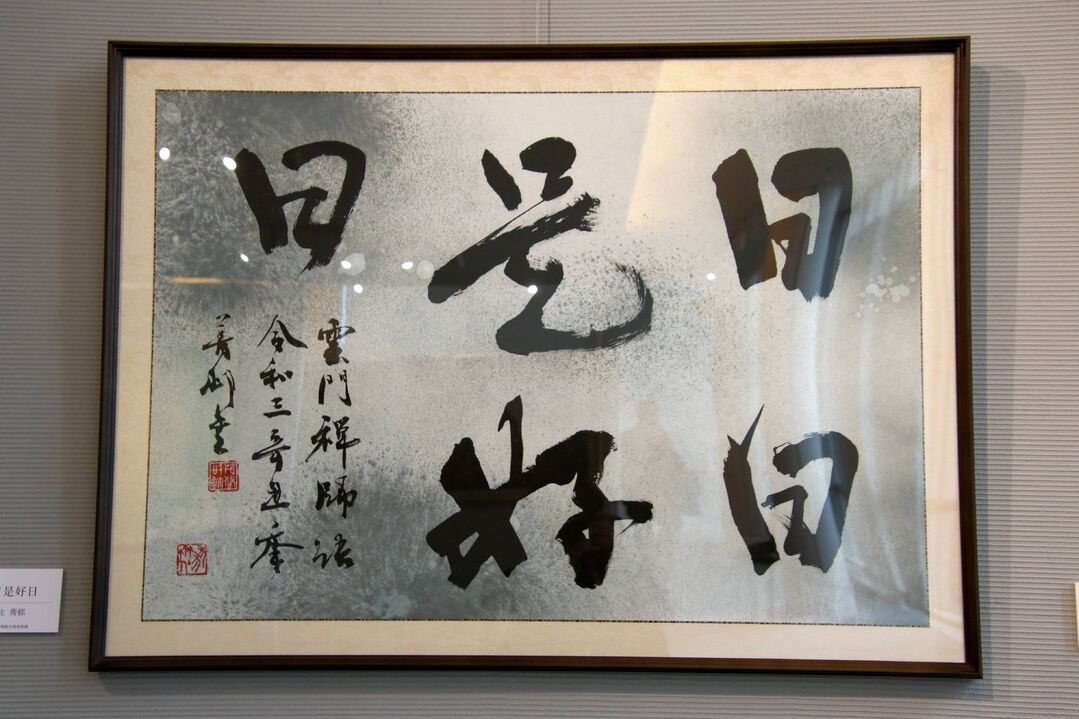 日日
是好
日
雲門禪師語
令和三辛丑春
菁邨書
是好日
菁邨